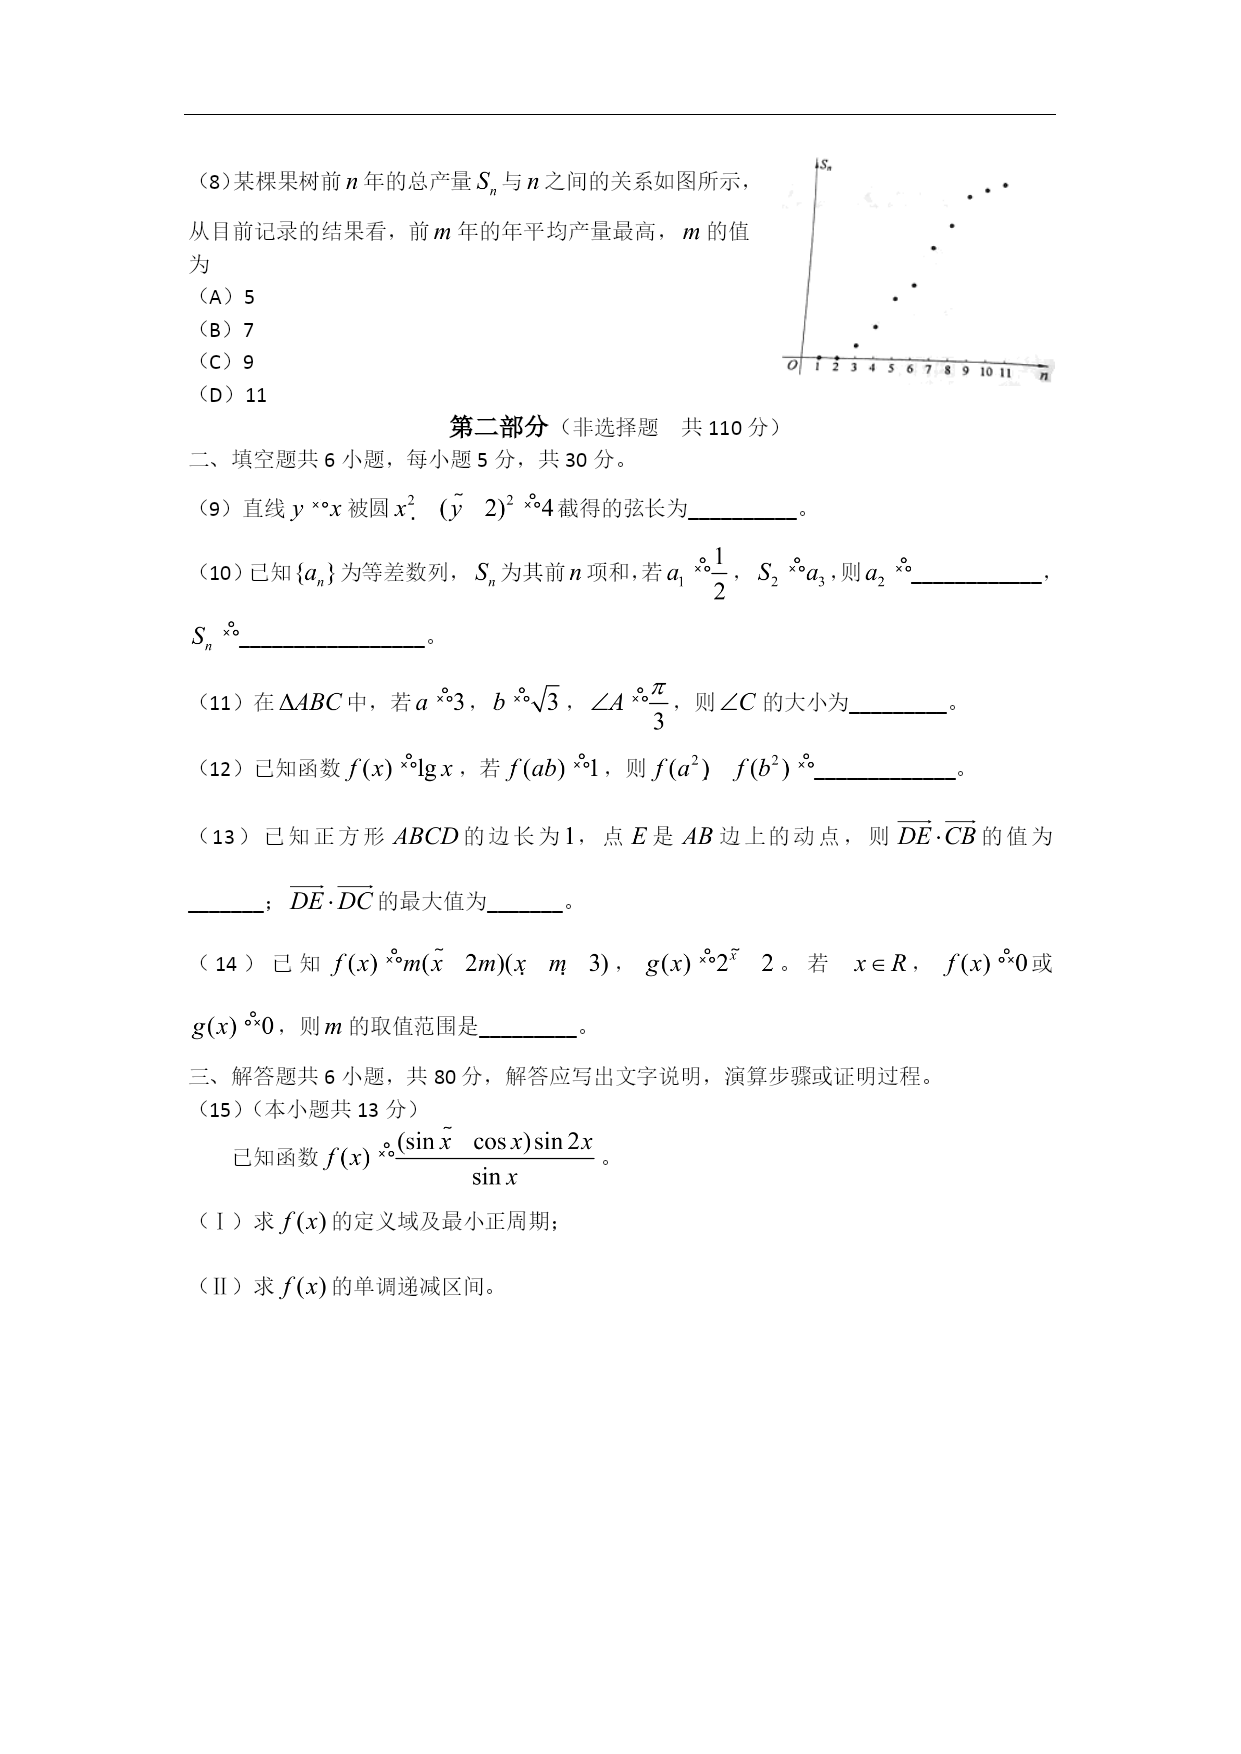 （8）某棵果树前 n 年的总产量 Sn 与 n 之间的关系如图所示，
从目前记录的结果看，前 m 年的年平均产量最高， m 的值
为
（A）5
（B）7
（C）9
（D）11
Sn
O 1 2 3 4 5 6 7 8 9 10 11 n
第二部分（非选择题 共 110 分）
二、填空题共 6 小题，每小题 5 分，共 30 分。
（9）直线 y ×∘ x 被圆 x². (ỹ 2)² ×∘ 4 截得的弦长为__________。
（10）已知{an}为等差数列， Sn 为其前 n 项和，若 a1 ×∘ 1/2 ， S2 ×∘ a3 ，则 a2 ×∘____________，
Sn ×∘_________________。
（11）在 ΔABC 中，若 a ×∘ 3， b ×∘ √3 ， ∠A ×∘ π/3 ，则 ∠C 的大小为_________。
（12）已知函数 f(x) ×∘ lg x ，若 f(ab) ×∘ 1，则 f(a²) f(b²) ×∘_____________。
（13）已知正方形 ABCD 的边长为 1，点 E 是 AB 边上的动点，则 DE · CB 的值为
_______；DE · DC 的最大值为_______。
（14）已知 f(x) ×∘ m(x̃ 2m)(x̣ ṃ 3)， g(x) ×∘ 2^x̃ 2。若 x∈R， f(x) ∘× 0 或
g(x) ∘× 0，则 m 的取值范围是_________。
三、解答题共 6 小题，共 80 分，解答应写出文字说明，演算步骤或证明过程。
（15）（本小题共 13 分）
已知函数 f(x) ×∘ (sin x̃ cos x)sin 2x / sin x 。
（Ⅰ）求 f(x) 的定义域及最小正周期；
（Ⅱ）求 f(x) 的单调递减区间。